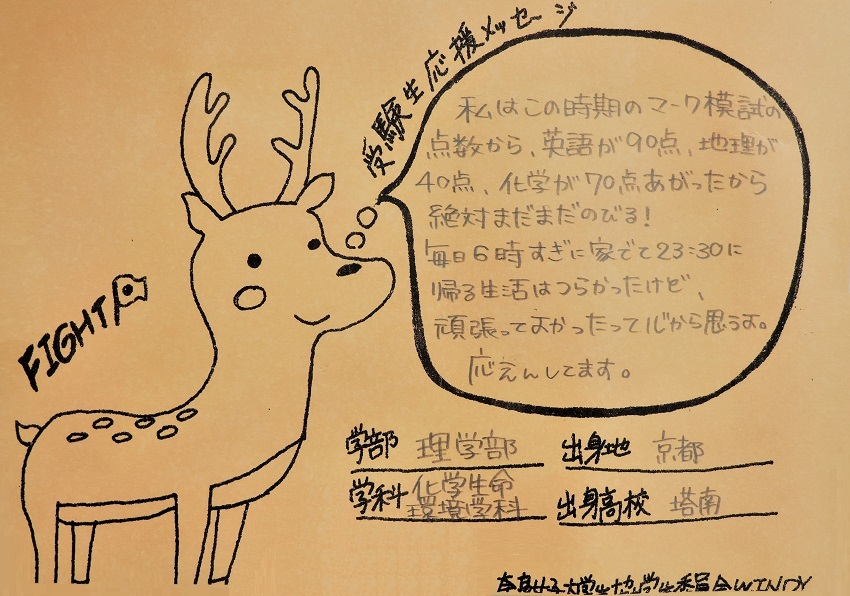 受験生応援メッセージ
私はこの時期のマーク模試の
点数から、英語が90点、地理が
40点、化学が70点あがったから
絶対まだまだのびる!
毎日6時すぎに家でて23:30に
帰る生活はつらかったけど、
頑張ってよかったって心から思うよ。
応えんしてます。
FIGHT
学部 理学部
出身地 京都
学科 化学生命
環境学科
出身高校 塔南
奈良女子大学生協学生委員会WINDY